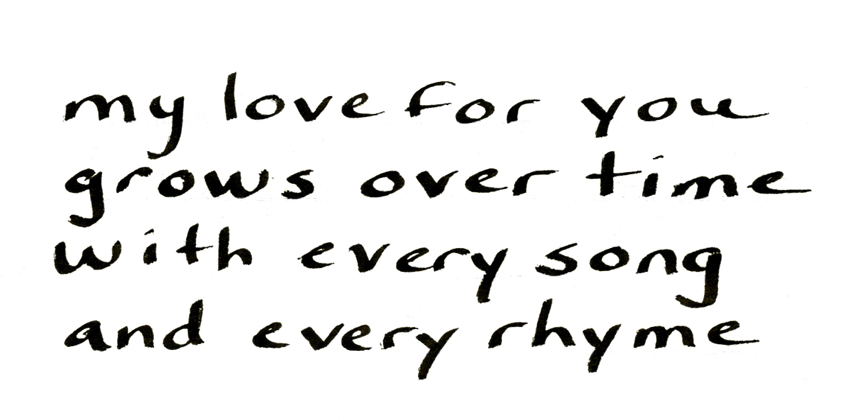 my love for you
grows over time
with every song
and every rhyme